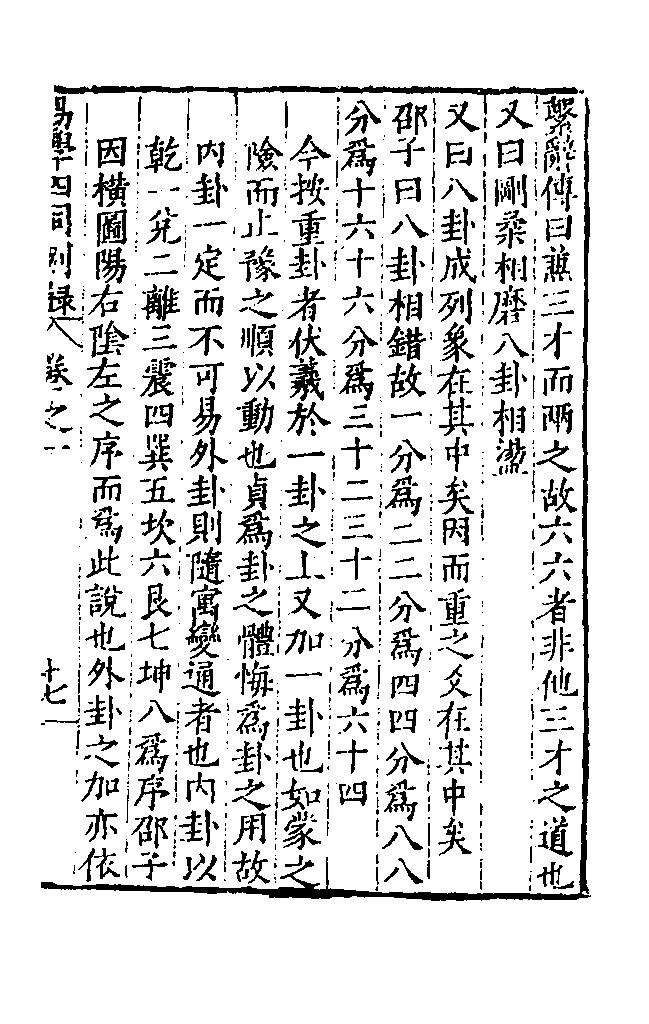 繫辭傳曰兼三才而兩之故六六者非他三才之道也
又曰剛柔相磨八卦相盪
又曰八卦成列象在其中矣因而重之爻在其中矣
邵子曰八卦相錯故一分爲二二分爲四四分爲八八
分爲十六十六分爲三十二三十二分爲六十四
今按重卦者伏羲於一卦之上又加一卦也如蒙之
險而止豫之順以動也貞爲卦之體悔爲卦之用故
內卦一定而不可易外卦則隨寓變通者也內卦以
乾一兌二離三震四巽五坎六艮七坤八爲序邵子
因橫圖陽右陰左之序而爲此說也外卦之加亦依
易學四同別錄 卷之一 十七